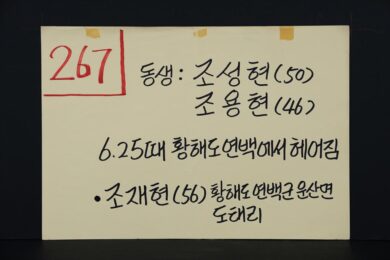 267
동생: 조성현(50)
조용현(46)
6.25때 황해도연백에서 헤어짐
• 조재현(56) 황해도연백군운산면
도태리